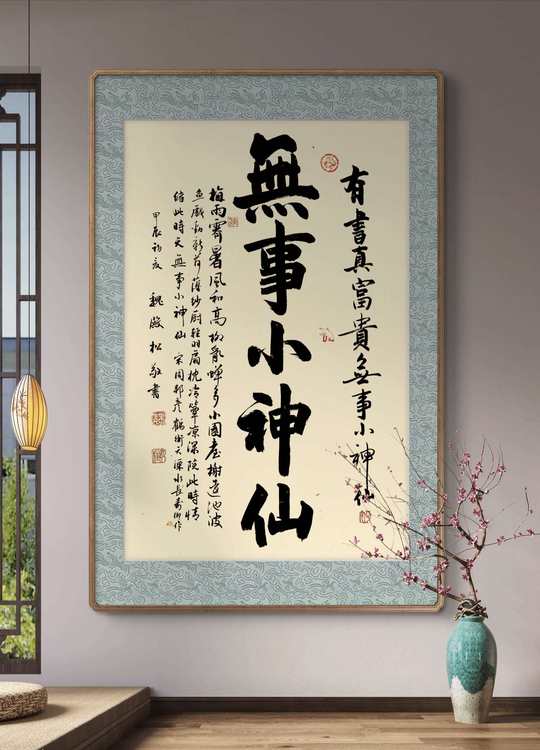 有書真富貴無事小神仙
無事小神仙
梅雨霽暑風和高柳亂蟬多小園臺榭遠池波
魚戲動新荷薄紗廚輕羽扇枕冷簟涼深院此時情
緒此時天無事小神仙 宋周邦彥鶴沖天溧水長壽鄉作
甲辰初夏 魏 松敬書